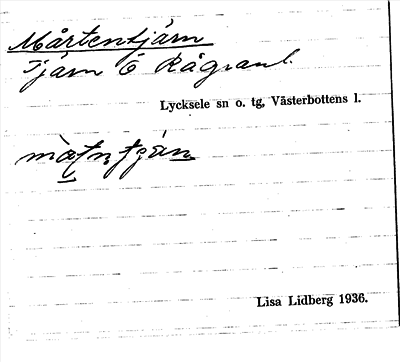 Mårtentjärn
Tjärn Ö Rågraul.
Lycksele sn o. tg, Västerbottens l.
Lisa Lidberg 1936.